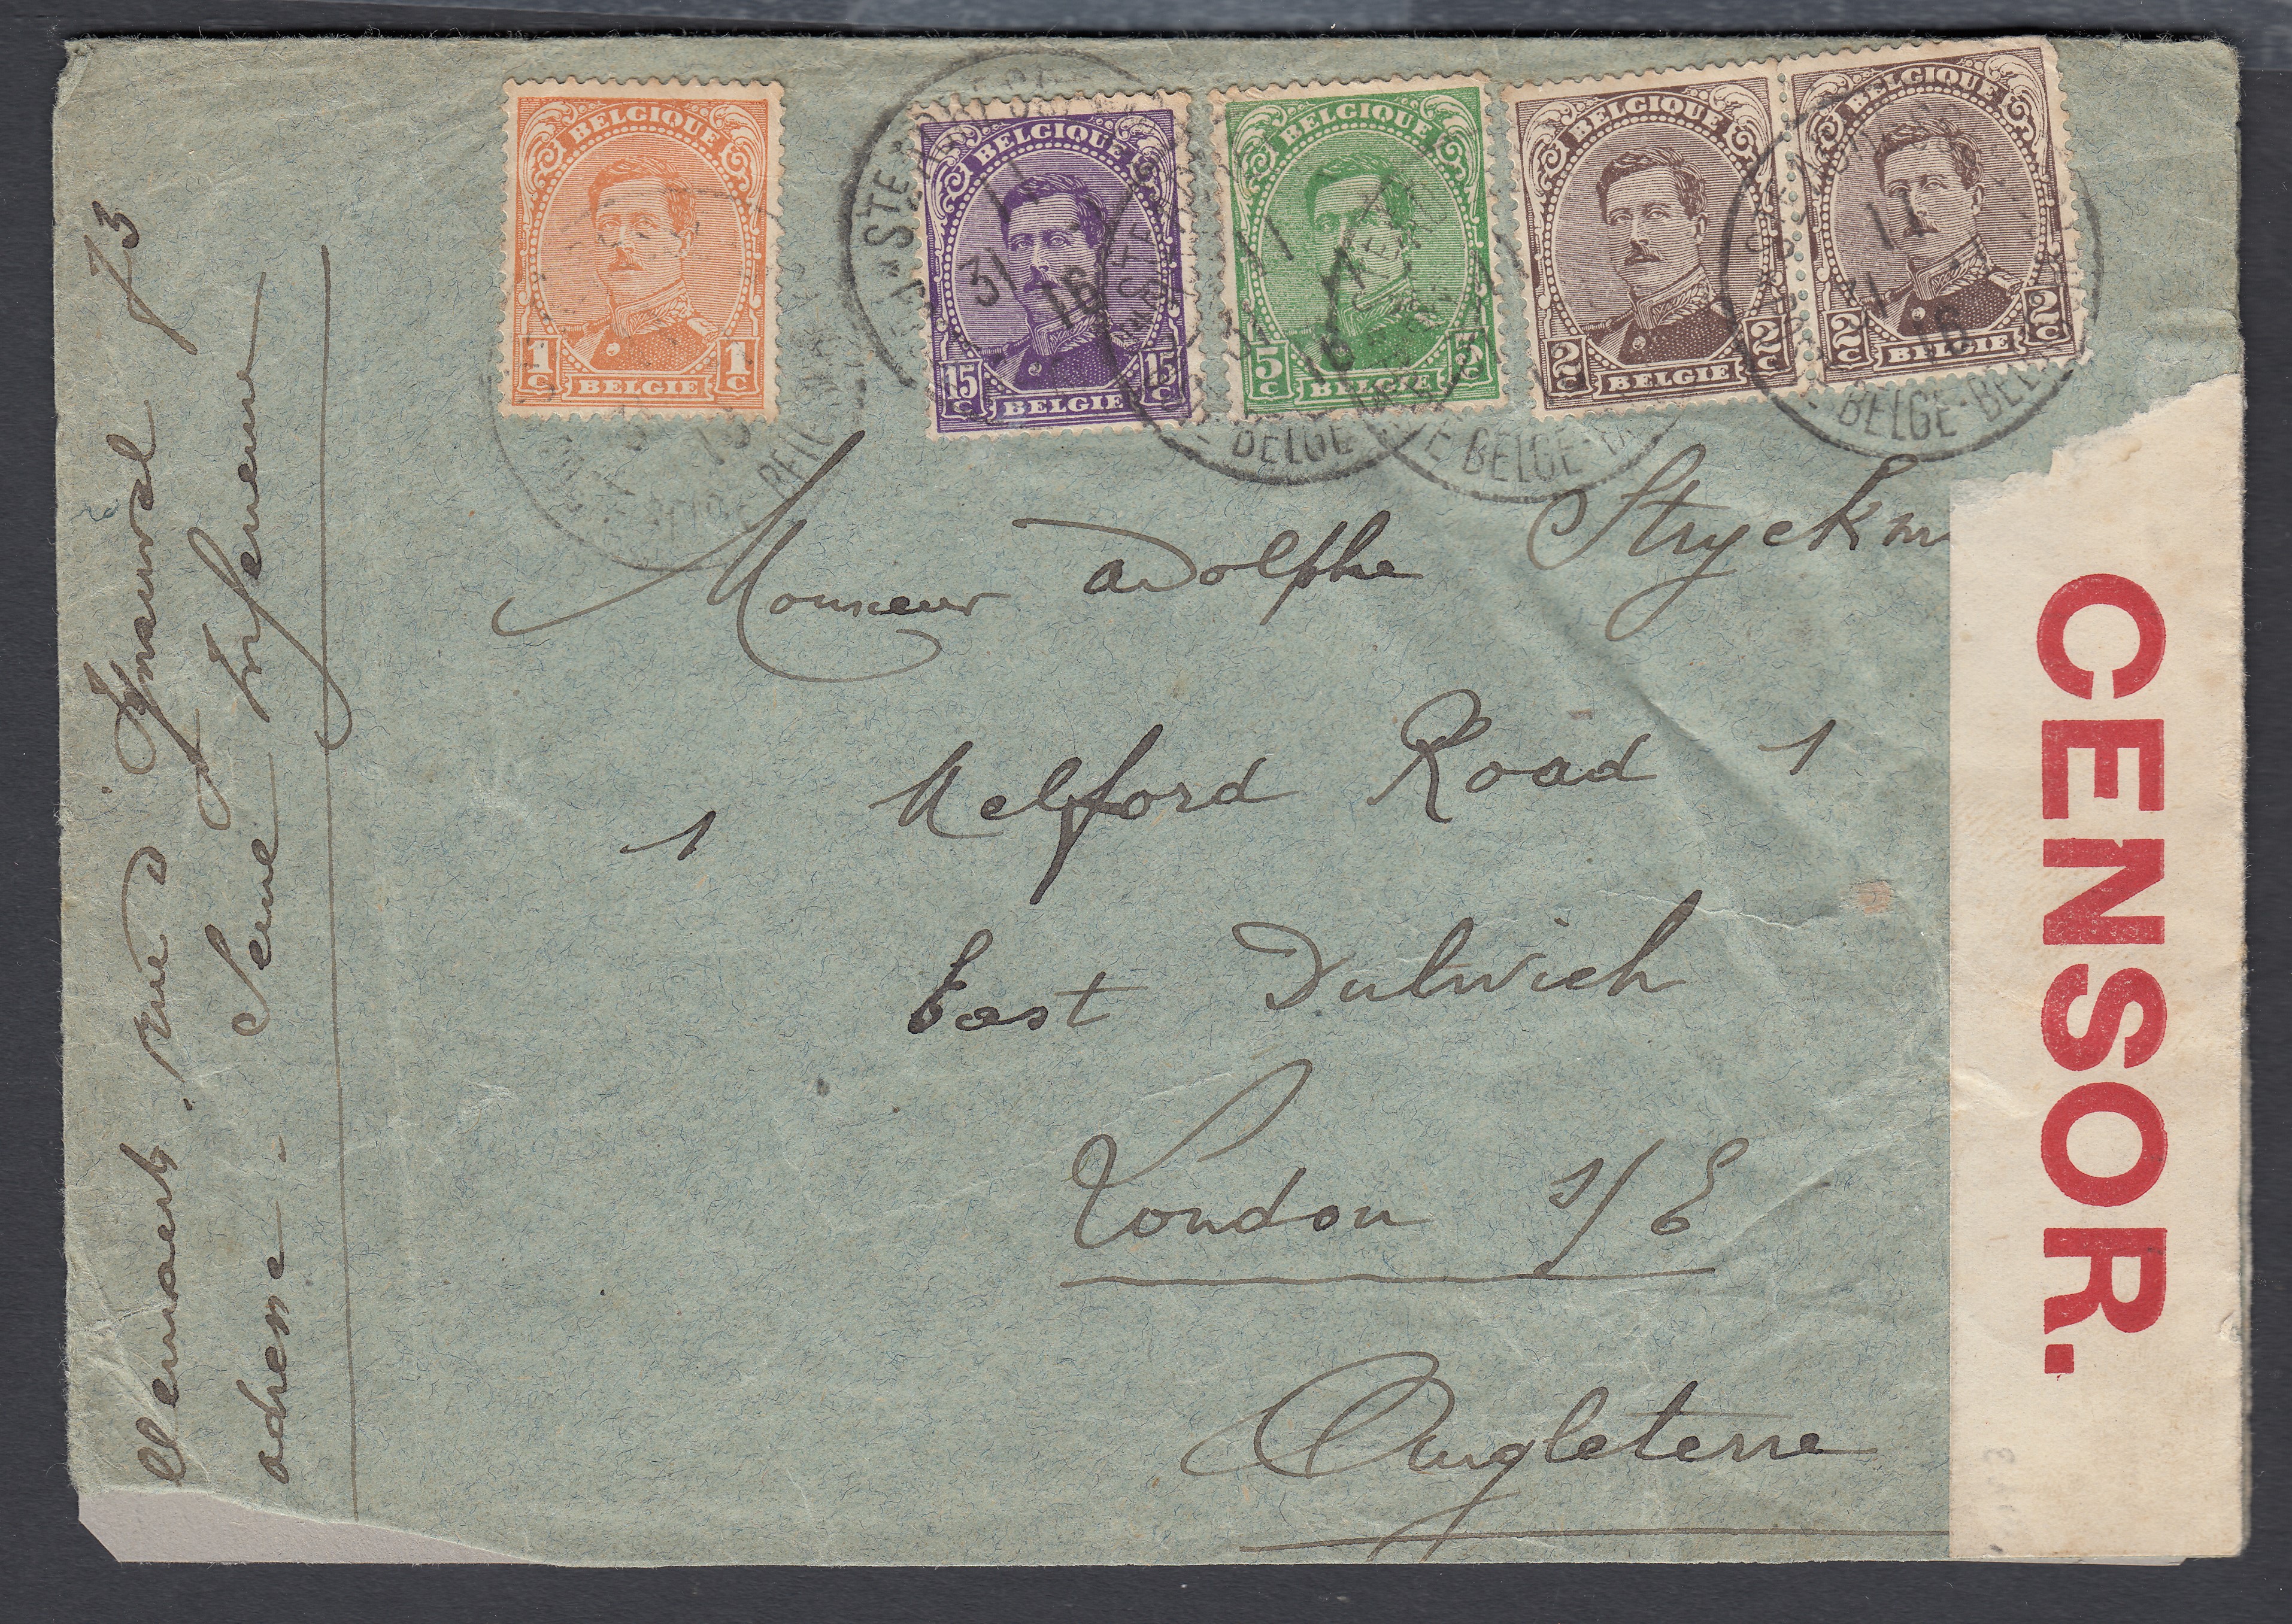 BELGIQUE
1c 1c
BELGIE
BELGIQUE
15c 15c
BELGIE
BELGIQUE
5c 5c
BELGIE
BELGIQUE
2c 2c
BELGIE
BELGIQUE
2c 2c
BELGIE
11
31 16
11
31 16
BELGE
E BELGE-B
11
31 16
BELGE-BE
Monsieur Adolphe Stryckm
1 Melford Road 1
East Dulwich
London S/E
Angleterre
CENSOR.
rue d 73
Seine Inférieure
adresse